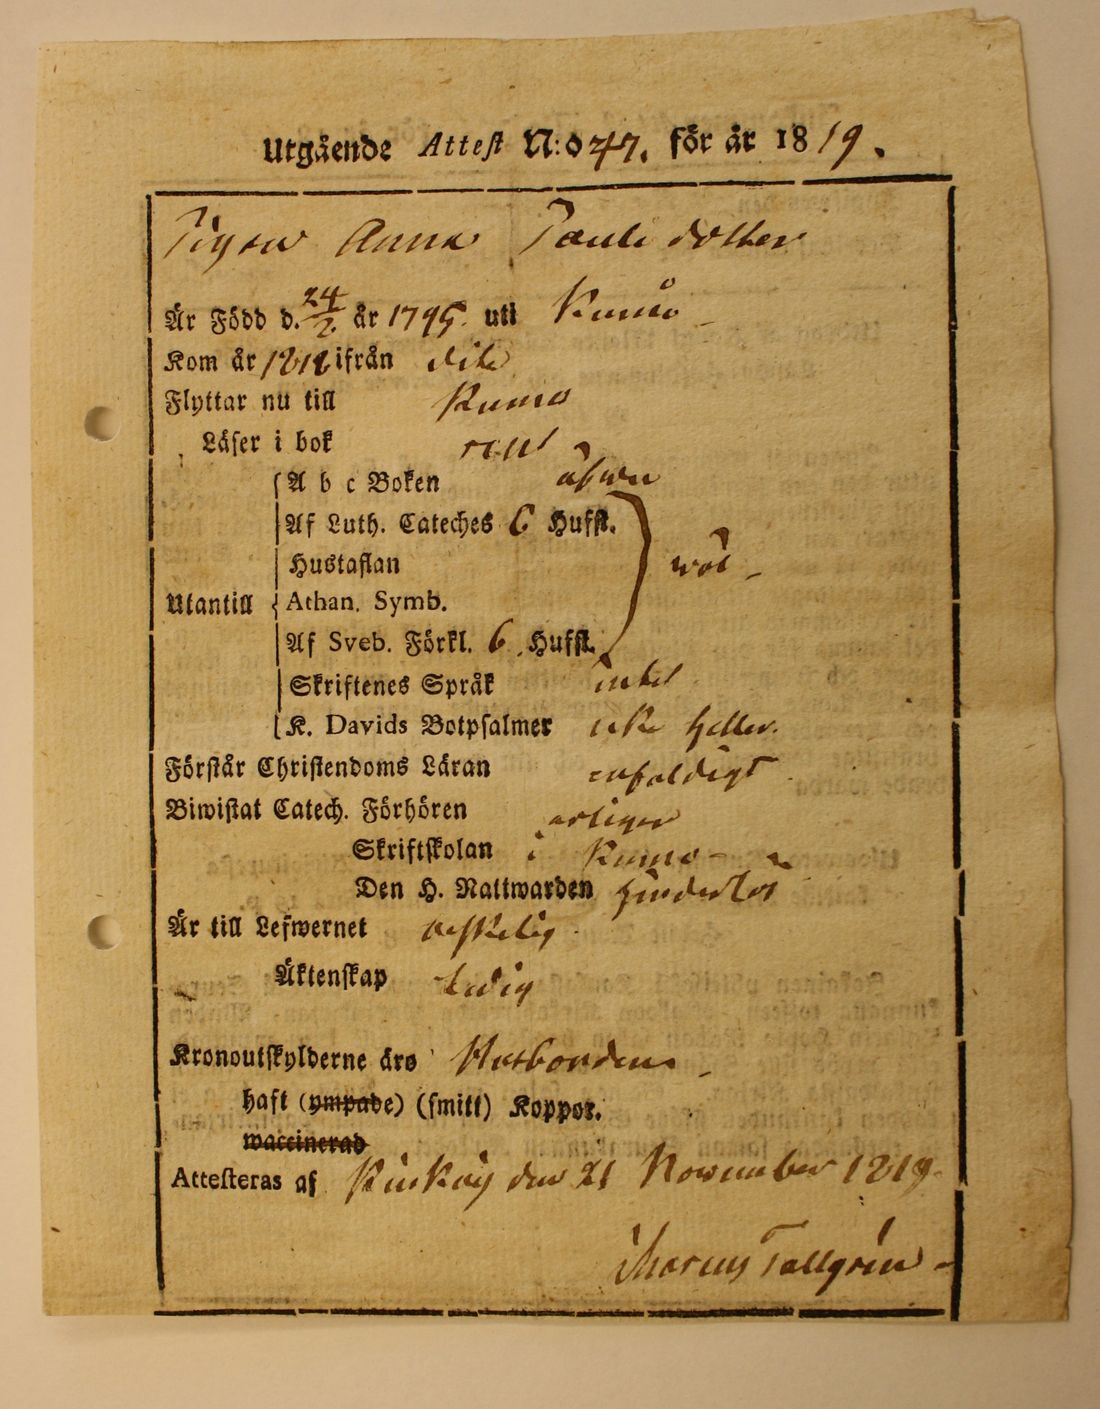 Utgående Attest N:o 47. för år 1819.
Pigan Anna Pauls dotter
Är Född d. 24/2. år 1795. uti Kumo
Kom år 1818 ifrån dito
Flyttar nu till Kumo
Läser i bok rent
A b c Boken äfwen
Af Luth. Cateches 6 Hufst.
Hustaflan wäl
Utantill Athan. Symb.
Af Sveb. Förkl. 6 Hufst.
Skriftenes Språk intet
K. Davids Botpsalmer icke heller.
Förstår Christendoms Läran enfaldigt
Biwistat Catech. Förhören årligen
Skriftskolan i Kumo
Den H. Nattwarden
Är till Lefwernet beskelig
Äktenskap Ledig
Kronoutskylderne äro
haft (ympade) (smitt) Koppor.
waccinerad
Attesteras af Kiukais den 21 November 1819.
Tallgrén